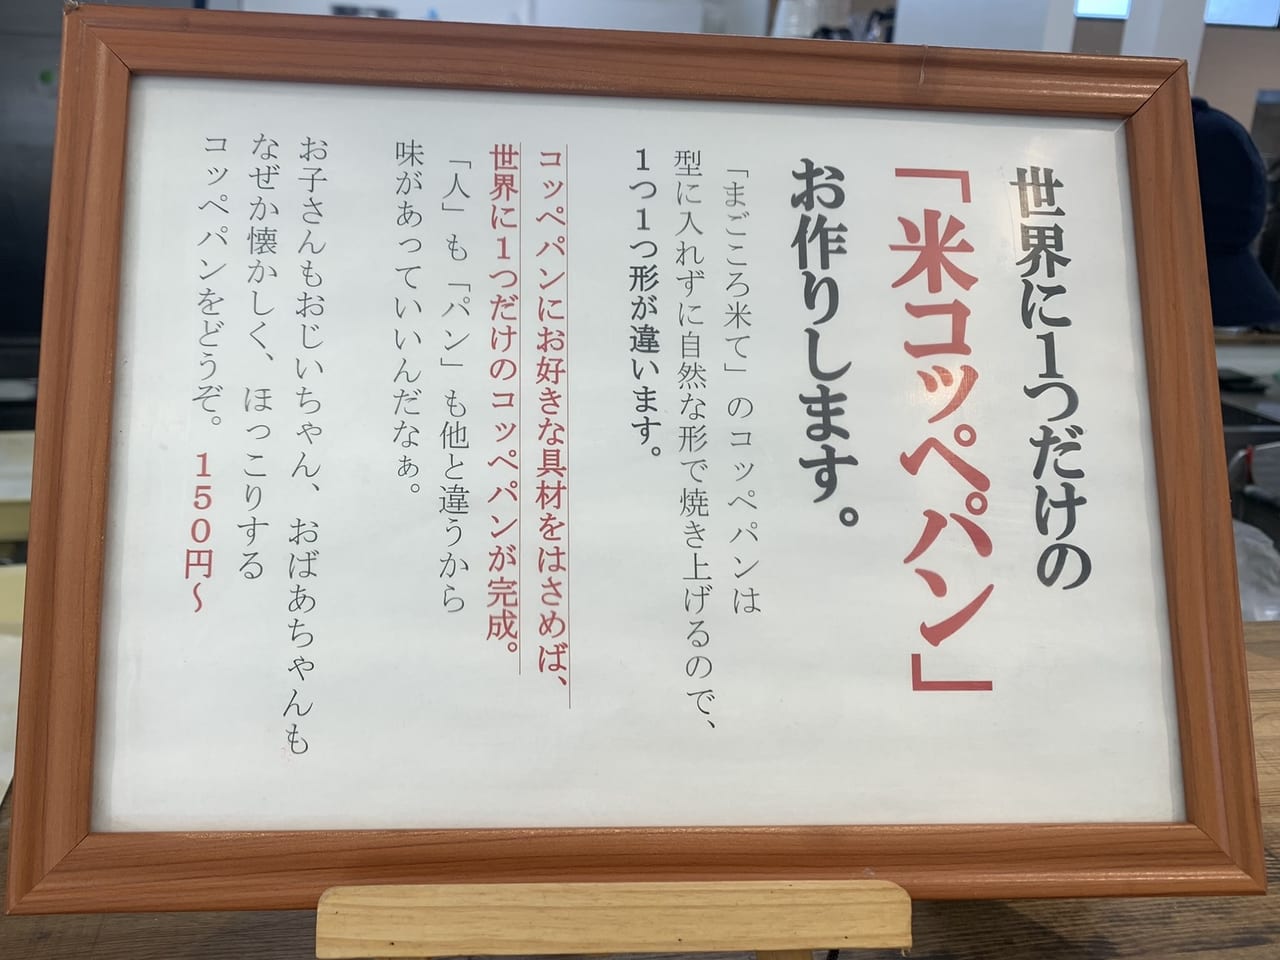 世界に1つだけの
「米コッペパン」
お作りします。
「まごころ米て」のコッペパンは
型に入れずに自然な形で焼き上げるので、
1つ1つ形が違います。
コッペパンにお好きな具材をはさめば、
世界に1つだけのコッペパンが完成。
「人」も「パン」も他と違うから
味があっていいんだなぁ。
お子さんもおじいちゃん、おばあちゃんも
なぜか懐かしく、ほっこりする
コッペパンをどうぞ。150円～